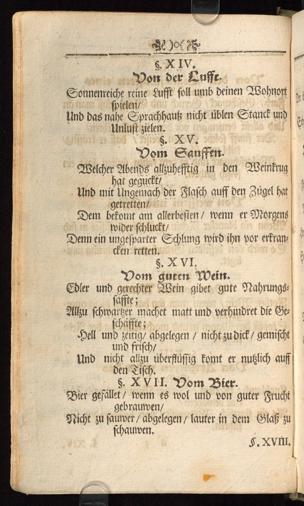 )o(
§. XIV.
Von der Lufft.
Sonnenreiche reine Lufft soll umb deinen Wohnort
spielen/
Und das nahe Sprachhauß nicht üblen Stanck und
Unlust zielen.
§. XV.
Vom Sauffen.
Welcher Abends allzuhefftig in den Weinkrug
hat geguckt/
Und mit Ungemach der Flasch auff den Zügel hat
getretten/
Dem bekomt am allerbesten/ wenn er Morgens
wider schluckt/
Denn ein ungesparter Schlung wird ihn vor erkran-
cken retten.
§. XVI.
Vom guten Wein.
Edler und gerechter Wein gibet gute Nahrungs-
säffte;
Allzu schwartzer machet matt und verhindret die Ge-
schäffte;
Hell und zeitig/ abgelegen/ nicht zu dick/ gemischt
und frisch/
Und nicht allzu überflüssig komt er nutzlich auff
den Tisch.
§. XVII. Vom Bier.
Bier gefället/ wenn es wol und von guter Frucht
gebrauwen/
Nicht zu sauwer/ abgelegen/ lauter in dem Glaß zu
schauwen.
§. XVIII.